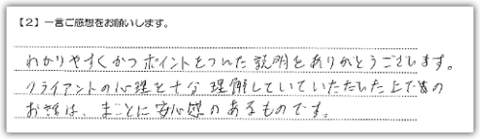 【2】一言ご感想をお願いします。
わかりやすくかつポイントをついた説明をありがとうございます。
クライアントの心理を十分理解していていただいた上での
お話は、まことに安心感のあるものです。